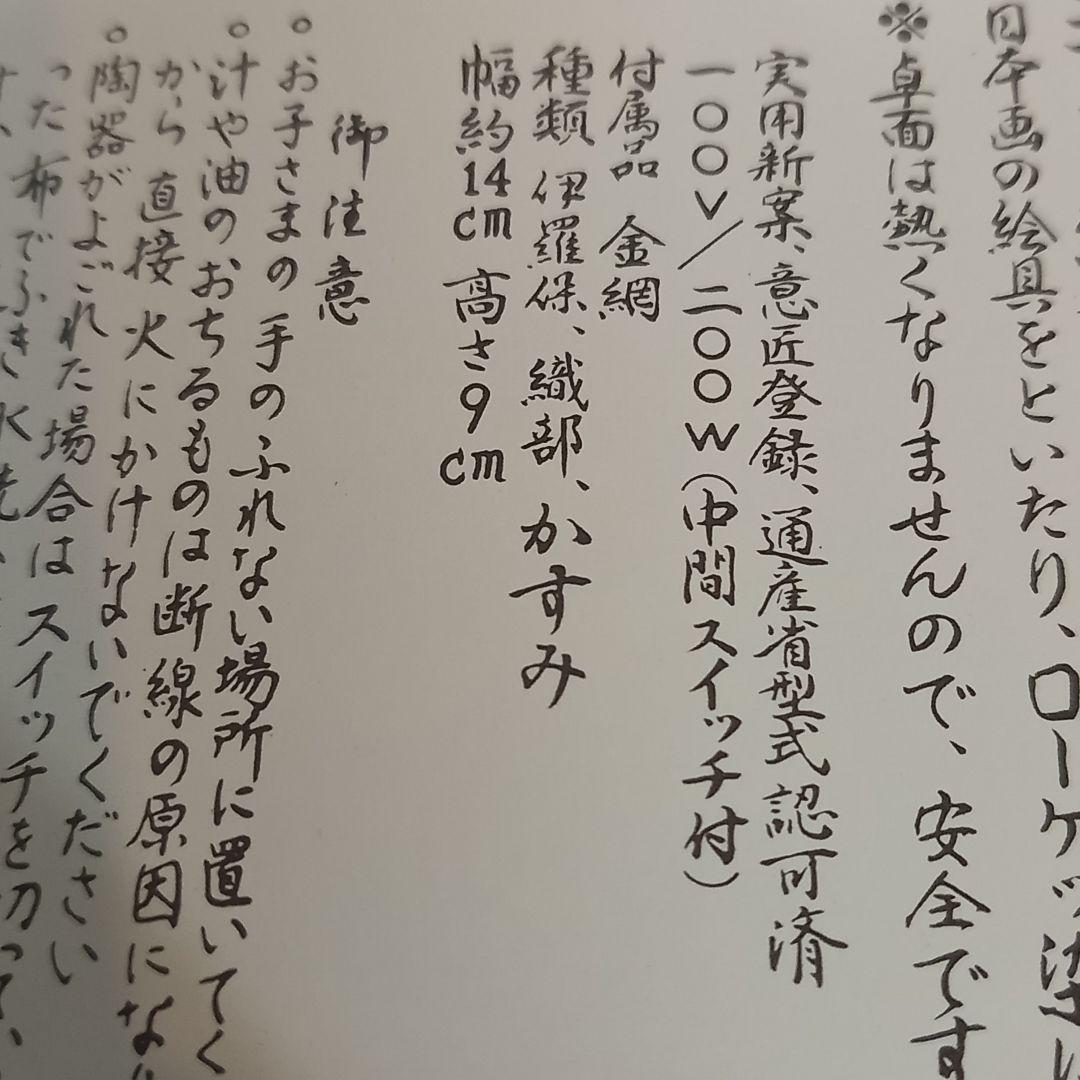 日本画の絵具をといたり、ローケツ染
※卓面は熱くなりませんので、安全です
実用新案、意匠登録、通産省型式認可済
一〇〇V/二〇〇W(中間スイッチ付)
付属品 金網
種類 伊羅保、織部、かすみ
幅約14cm 高さ9cm
御注意
○お子さまの手のふれない場所に置いてく
○汁や油のおちるものは断線の原因にな
から直接火にかけないでください
○陶器がよごれた場合はスイッチを切って、
った布でふき水洗